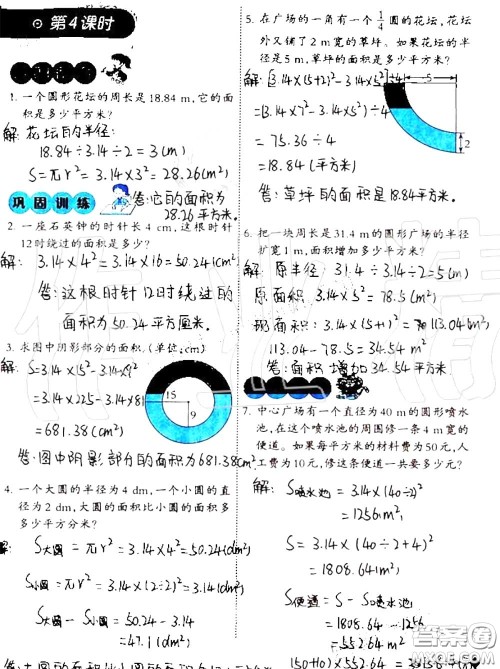 第4课时
1. 一个圆形花坛的周长是18.84 m,它的面
积是多少平方米?
解: 花坛的半径:
18.84÷3.14÷2=3(m)
S=πr²=3.14×3²=28.26(m²)
答:它的面积为
28.26平方米.
巩固训练
2. 一座石英钟的时针长4 cm,这根时针
12时绕过的面积是多少?
解: 3.14×4²=3.14×16=50.24(cm²)
答:这根时针12时绕过的
面积为50.24平方厘米.
3. 求图中阴影部分的面积.(单位:cm)
解: S=3.14×15²-3.14×9²
=3.14×225-3.14×81
=681.38(cm²)
15
9
答:图中阴影部分的面积为681.38cm²
4. 一个大圆的半径为4 dm,一个小圆的直
径为2 dm,大圆的面积比小圆的面积多
多少平方分米?
S大圆=πr²=3.14×4²=50.24(dm²)
S小圆=πr²=3.14×(2÷2)²=3.14(dm²)
S大圆-S小圆=50.24-3.14
=47.1(dm²)
5. 在广场的一角有一个1/4圆的花坛,花坛
外又铺了2 m宽的草坪。如果花坛的半
径是5 m,草坪的面积是多少平方米?
解: [3.14×(5+2)²-3.14×5²]÷4
=[3.14×7²-3.14×5²]÷4
=75.36÷4
=18.84(平方米)
5
2
答:草坪的面积是18.84平方米.
6. 把一块周长是31.4 m的圆形广场的半径
扩宽1 m,面积增加多少平方米?
解: 原半径:31.4÷3.14÷2=5(m)
原面积:3.14×5²=78.5(m²)
现面积:3.14×(5+1)²=113.04(m²)
113.04-78.5=34.54 m²
答:面积增加34.54平方米.
7. 中心广场有一个直径为40 m的圆形喷水
池,在这个喷水池的周围修一条4 m宽的
便道。如果每平方米的材料费为50元,人
工费为10元,修这条便道一共要多少元?
解: S喷水池=3.14×(40÷2)²
=1256(m²)
S=3.14×(40÷2+4)²
=1808.64(m²)
S便道=S-S喷水池
=1808.64-1256
=552.64 m²